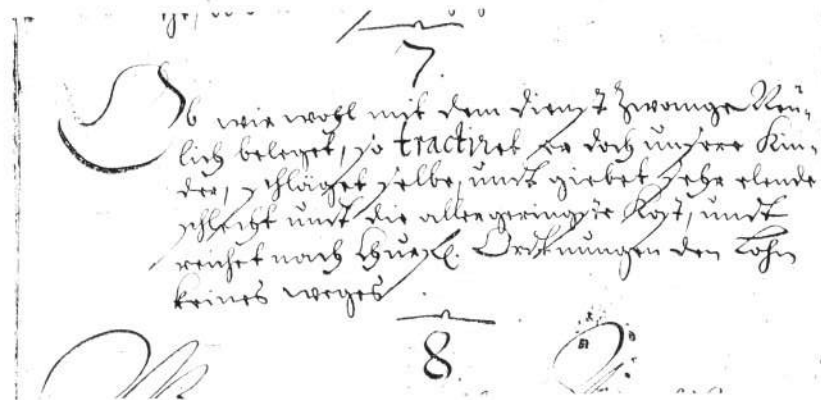 7.
Ob wir wohl mit dem dienst Zwange Neu-
lich beleget, so tractiret er doch unsere Kin-
der, schläget selbe, undt giebet sehr elende
schlecht undt die allergeringste Kost, undt
reichet nach Churfl. Ordtnungen den Lohn
keines weges.
8